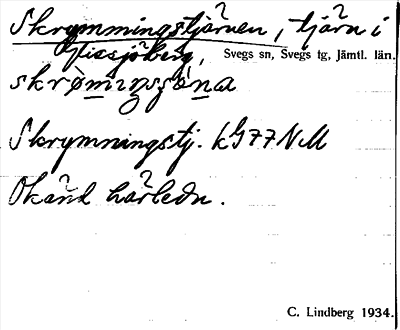 Skrymmingstjärnen, tjärn i
Vissjöberg, Svegs sn, Svegs tg, Jämtl. län.
Skrymningstj. k G77NM
Okänd härledn.
C. Lindberg 1934.